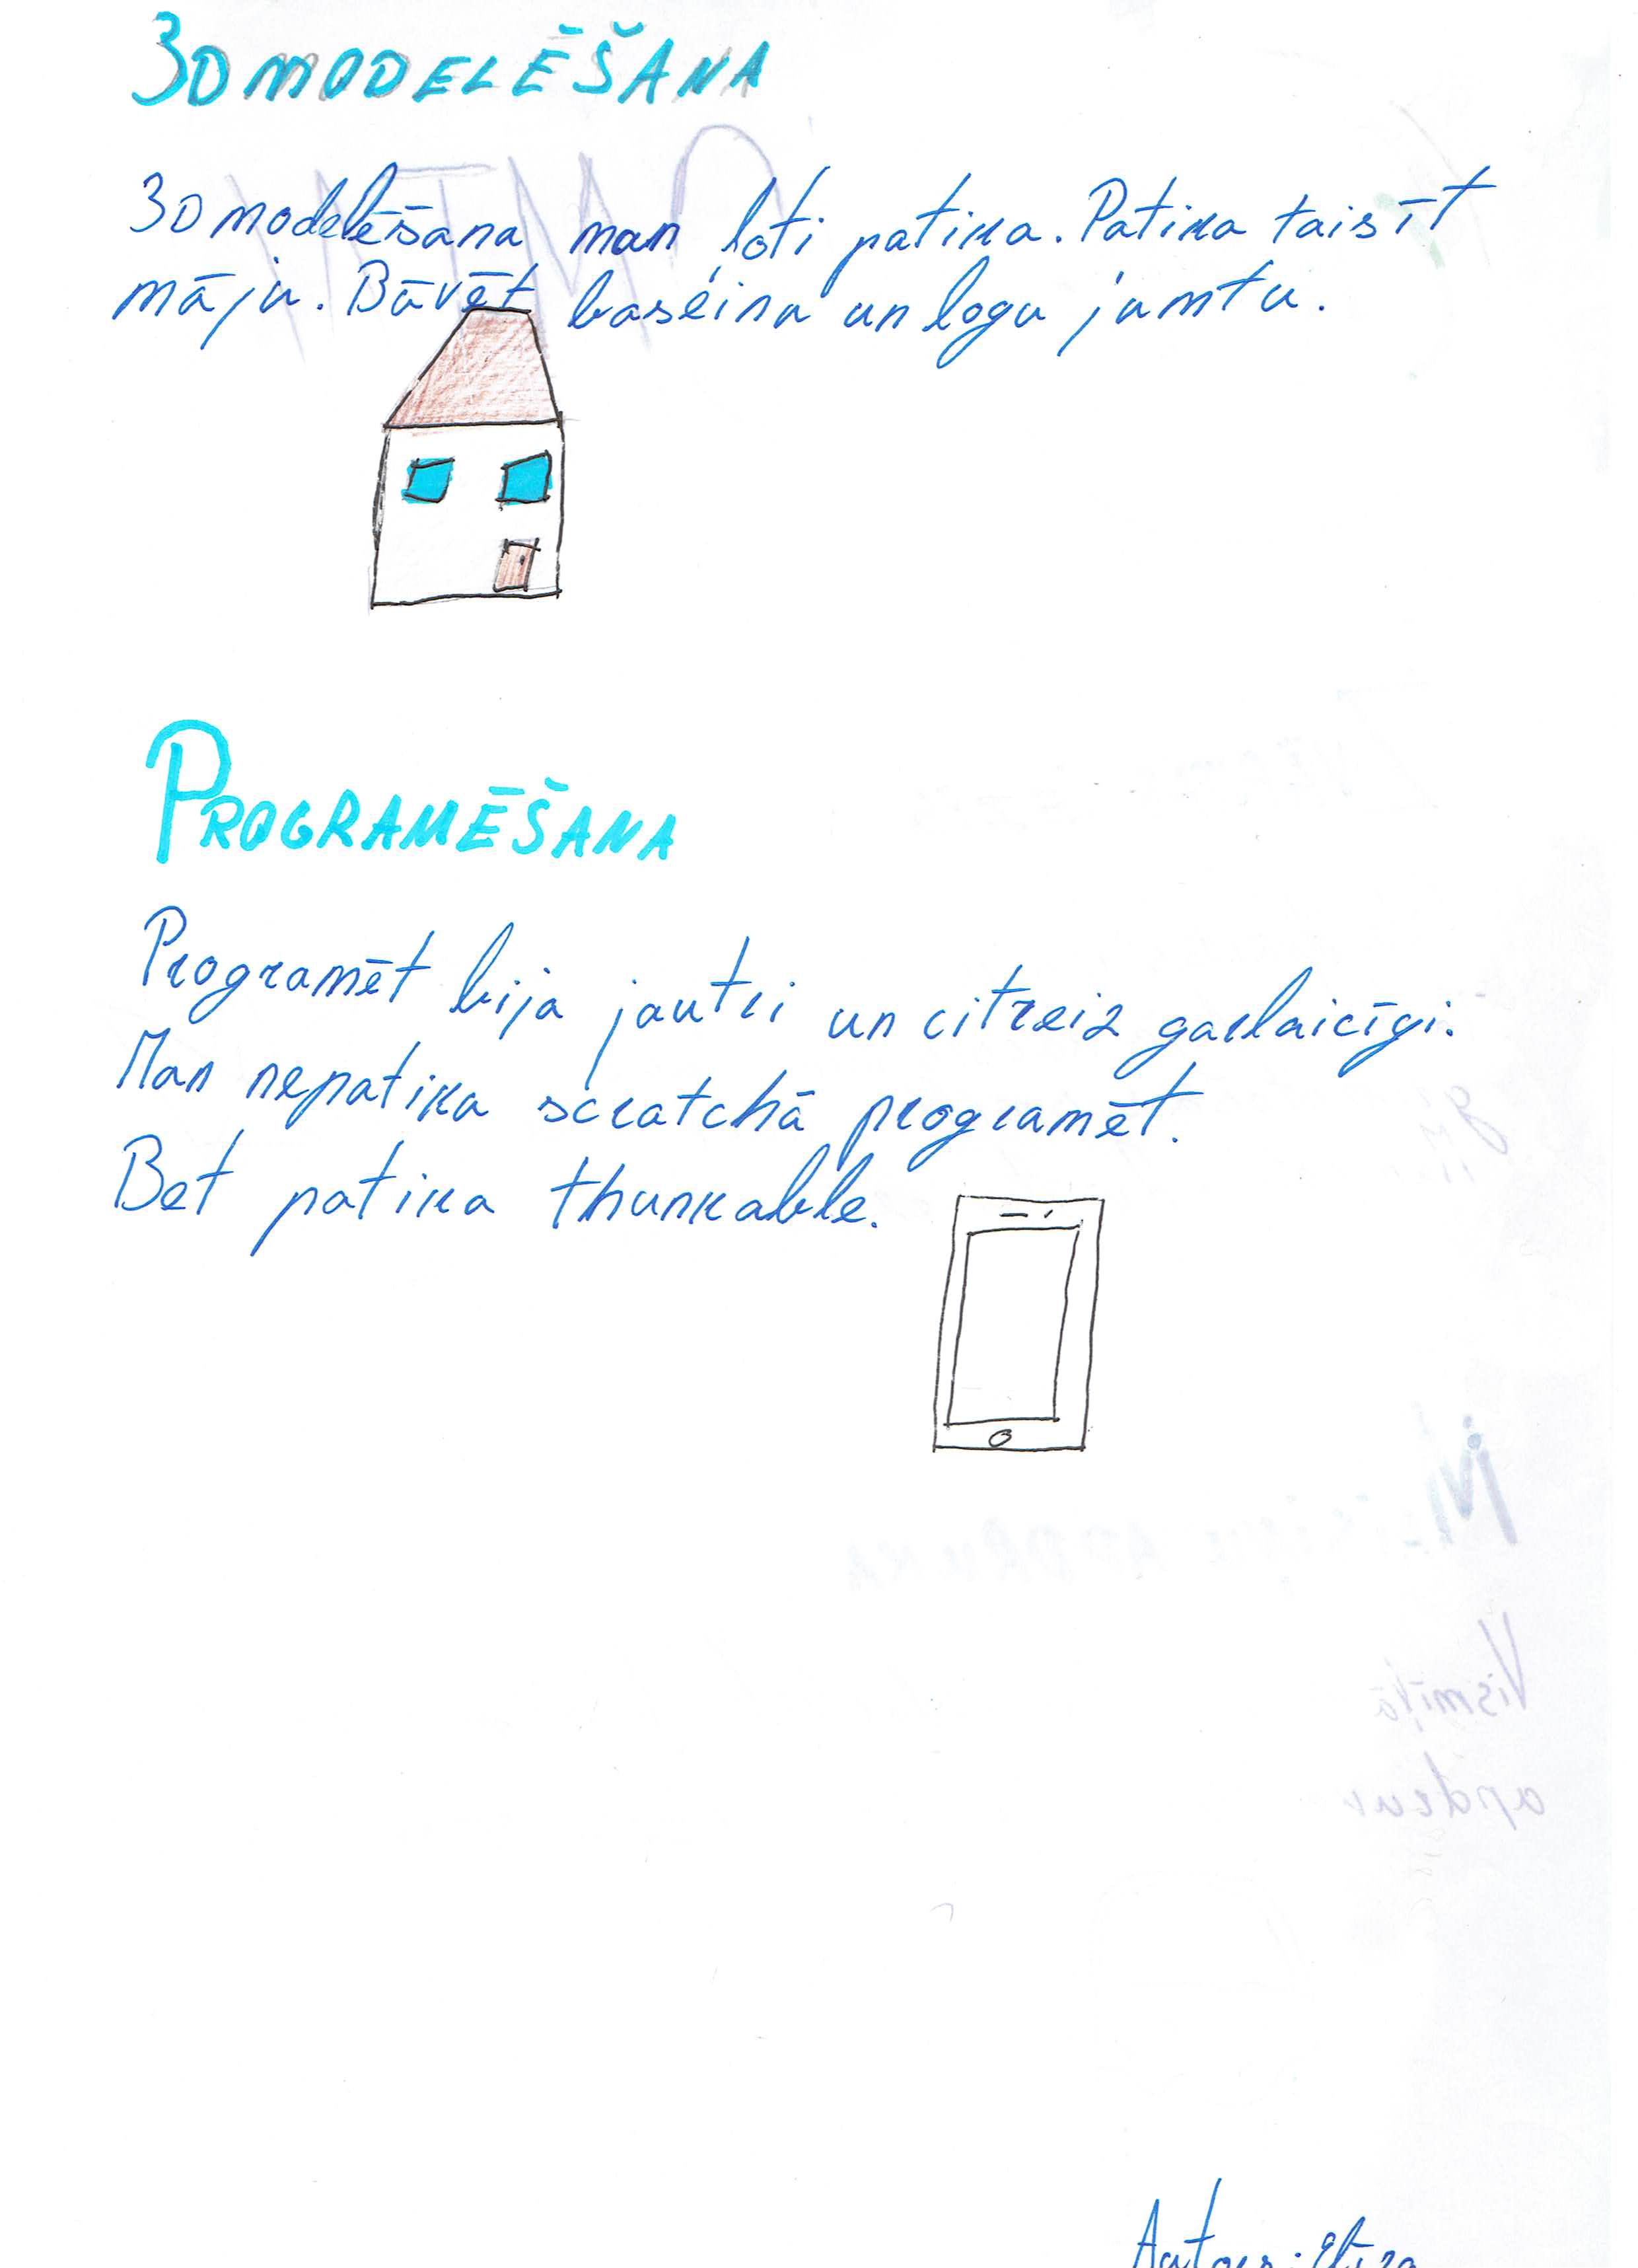 3D MODELĒŠANA
3D modelēšana man ļoti patika. Patika taisīt
māju. Būvēt baseinu un logu jumtu.
PROGRAMĒŠANA
Programēt bija jautri un citreiz garlaicīgi.
Man nepatika scratchā programēt.
Bet patika thunkable.